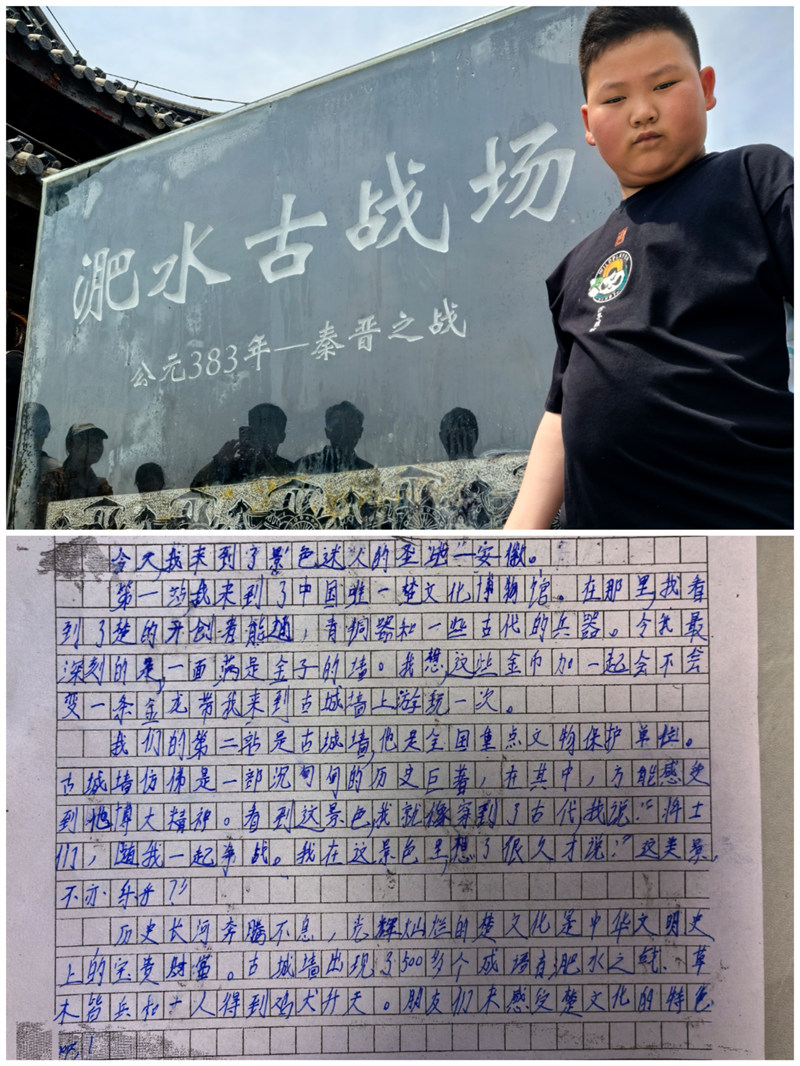 淝水古战场
公元383年—秦晋之战
今天,我来到了景色迷人的圣地—安徽。
第一站,我来到了中国唯一楚文化博物馆。在那里,我看
到了楚的开创者能通,青铜器和一些古代的兵器。令我最
深刻的是,一面满是金子的墙。我想,这些金币加一起会不会
变一条金龙带我来到古城墙上游玩一次。
我们的第二站是古城墙,他是全国重点文物保护单位。
古城墙仿佛是一部沉甸甸的历史巨著,在其中,方能感受
到他博大精神。看到这景色,我就像穿到了古代,我说:“将士
们,随我一起争战。我在这景色里想了很久才说:“这美景,
不亦乐乎?”
历史长河奔腾不息,光辉灿烂的楚文化是中华文明史
上的宝贵财富。古城墙出现了500多个成墙有淝水之战、草
木皆兵和一人得到鸡犬升天。朋友们来感受楚文化的特色
吧!